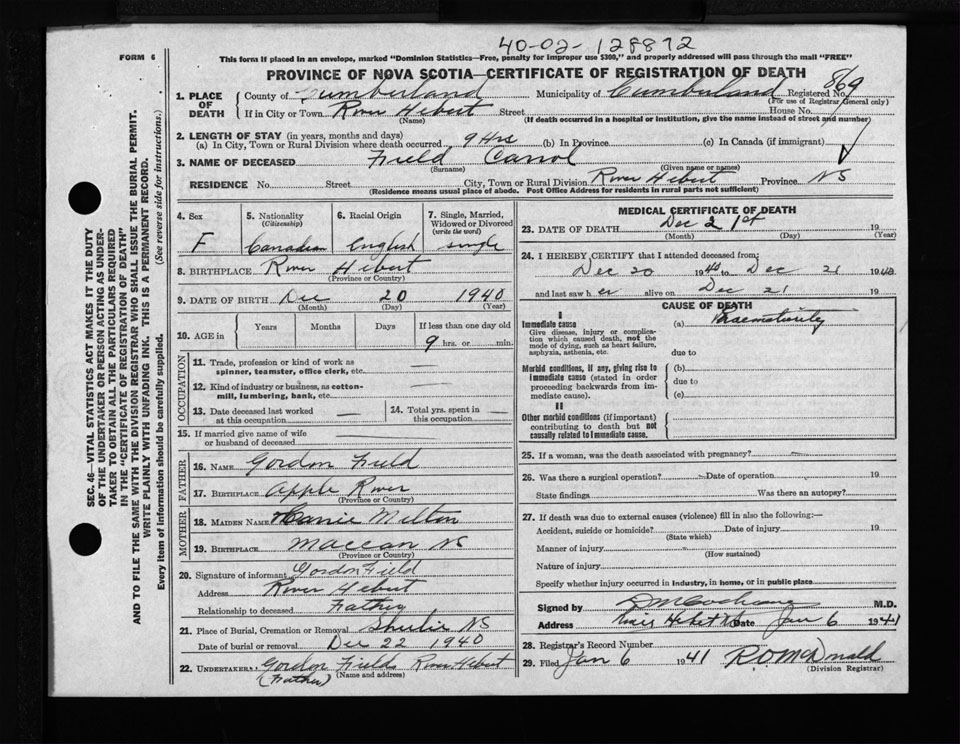 40-02-128872
FORM 6
This form if placed in an envelope, marked "Dominion Statistics—Free, penalty for improper use $300," and properly addressed will pass through the mail "FREE"
PROVINCE OF NOVA SCOTIA—CERTIFICATE OF REGISTRATION OF DEATH
SEC. 46—VITAL STATISTICS ACT MAKES IT THE DUTY
OF THE UNDERTAKER OR PERSON ACTING AS UNDER-
TAKER TO OBTAIN ALL THE PARTICULARS REQUIRED
IN THE "CERTIFICATE OF REGISTRATION OF DEATH"
AND TO FILE THE SAME WITH THE DIVISION REGISTRAR WHO SHALL ISSUE THE BURIAL PERMIT.
WRITE PLAINLY WITH UNFADING INK. THIS IS A PERMANENT RECORD.
Every item of information should be carefully supplied. (See reverse side for instructions.)
1. PLACE OF DEATH County of Cumberland Municipality of Cumberland Registered No. 869
(For use of Registrar General only)
If in City or Town River Hebert Street House No.
(Name) (If death occurred in a hospital or institution, give the name instead of street and number)
2. LENGTH OF STAY (in years, months and days)
(a) In City, Town or Rural Division where death occurred 9 Hrs (b) In Province (c) In Canada (if immigrant)
3. NAME OF DECEASED Field Carrol
(Surname) (Given name or names)
RESIDENCE No. Street City, Town or Rural Division River Hebert Province NS
(Residence means usual place of abode. Post Office Address for residents in rural parts not sufficient)
4. Sex F
5. Nationality (Citizenship) Canadian
6. Racial Origin English
7. Single, Married, Widowed or Divorced (write the word) single
8. BIRTHPLACE River Hebert
(Province or Country)
9. DATE OF BIRTH Dec 20 1940
(Month) (Day) (Year)
10. AGE in Years Months Days If less than one day old
9 hrs. or min.
OCCUPATION
11. Trade, profession or kind of work as
spinner, teamster, office clerk, etc. —
12. Kind of industry or business, as cotton-
mill, lumbering, bank, etc. —
13. Date deceased last worked at this occupation —
14. Total yrs. spent in this occupation —
15. If married give name of wife
or husband of deceased —
FATHER
16. NAME Gordon Field
17. BIRTHPLACE Apple River
(Province or Country)
MOTHER
18. MAIDEN NAME Carrie Melton
19. BIRTHPLACE Maccan NS
(Province or Country)
20. Signature of informant Gordon Field
Address River Hebert
Relationship to deceased Father
21. Place of Burial, Cremation or Removal Shulie NS
Date of burial or removal Dec 22 1940
22. UNDERTAKER Gordon Field River Hebert
(Father) (Name and address)
MEDICAL CERTIFICATE OF DEATH
23. DATE OF DEATH Dec 21st 19
(Month) (Day) (Year)
24. I HEREBY CERTIFY that I attended deceased from:
Dec 20 1940 to Dec 21 1940
and last saw her alive on Dec 21 19
CAUSE OF DEATH
I
Immediate cause (a) Praematurity
Give disease, injury or complica-
tion which caused death, not the
mode of dying, such as heart failure,
asphyxia, asthenia, etc. due to
Morbid conditions, if any, giving rise to (b)
immediate cause (stated in order due to
proceeding backwards from im-
mediate cause). (c)
II
Other morbid conditions (if important)
contributing to death but not
causally related to immediate cause.
25. If a woman, was the death associated with pregnancy?
26. Was there a surgical operation? Date of operation 19
State findings Was there an autopsy?
27. If death was due to external causes (violence) fill in also the following:—
Accident, suicide or homicide? Date of injury 19
(State which)
Manner of injury
(How sustained)
Nature of injury
Specify whether injury occurred in industry, in home, or in public place
Signed by D M Cochrane M.D.
Address River Hebert NS Date Jan 6 1941
28. Registrar's Record Number
29. Filed Jan 6 1941 R O McDonald
(Division Registrar)